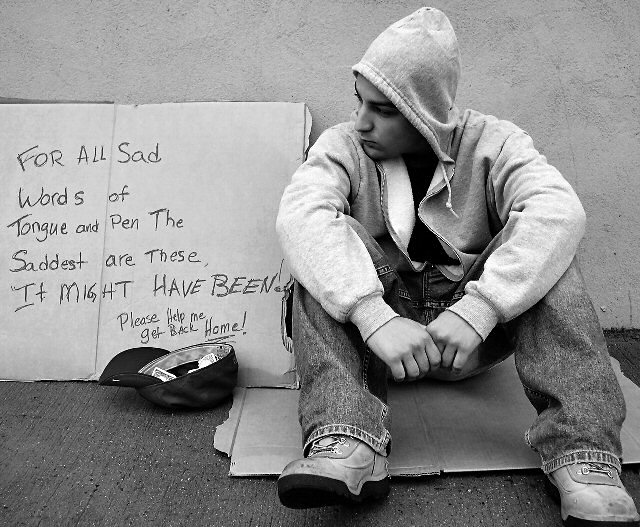 FOR ALL Sad
Words of
Tongue and Pen The
Saddest are These,
"It MIGHT HAVE BEEN!"
Please Help me
get Back Home!